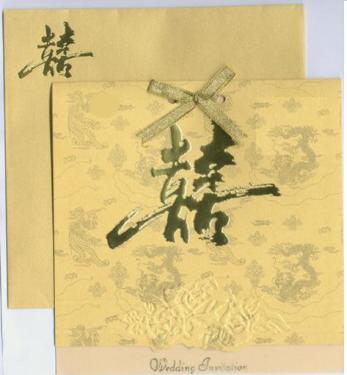 囍
囍
Wedding Invitation